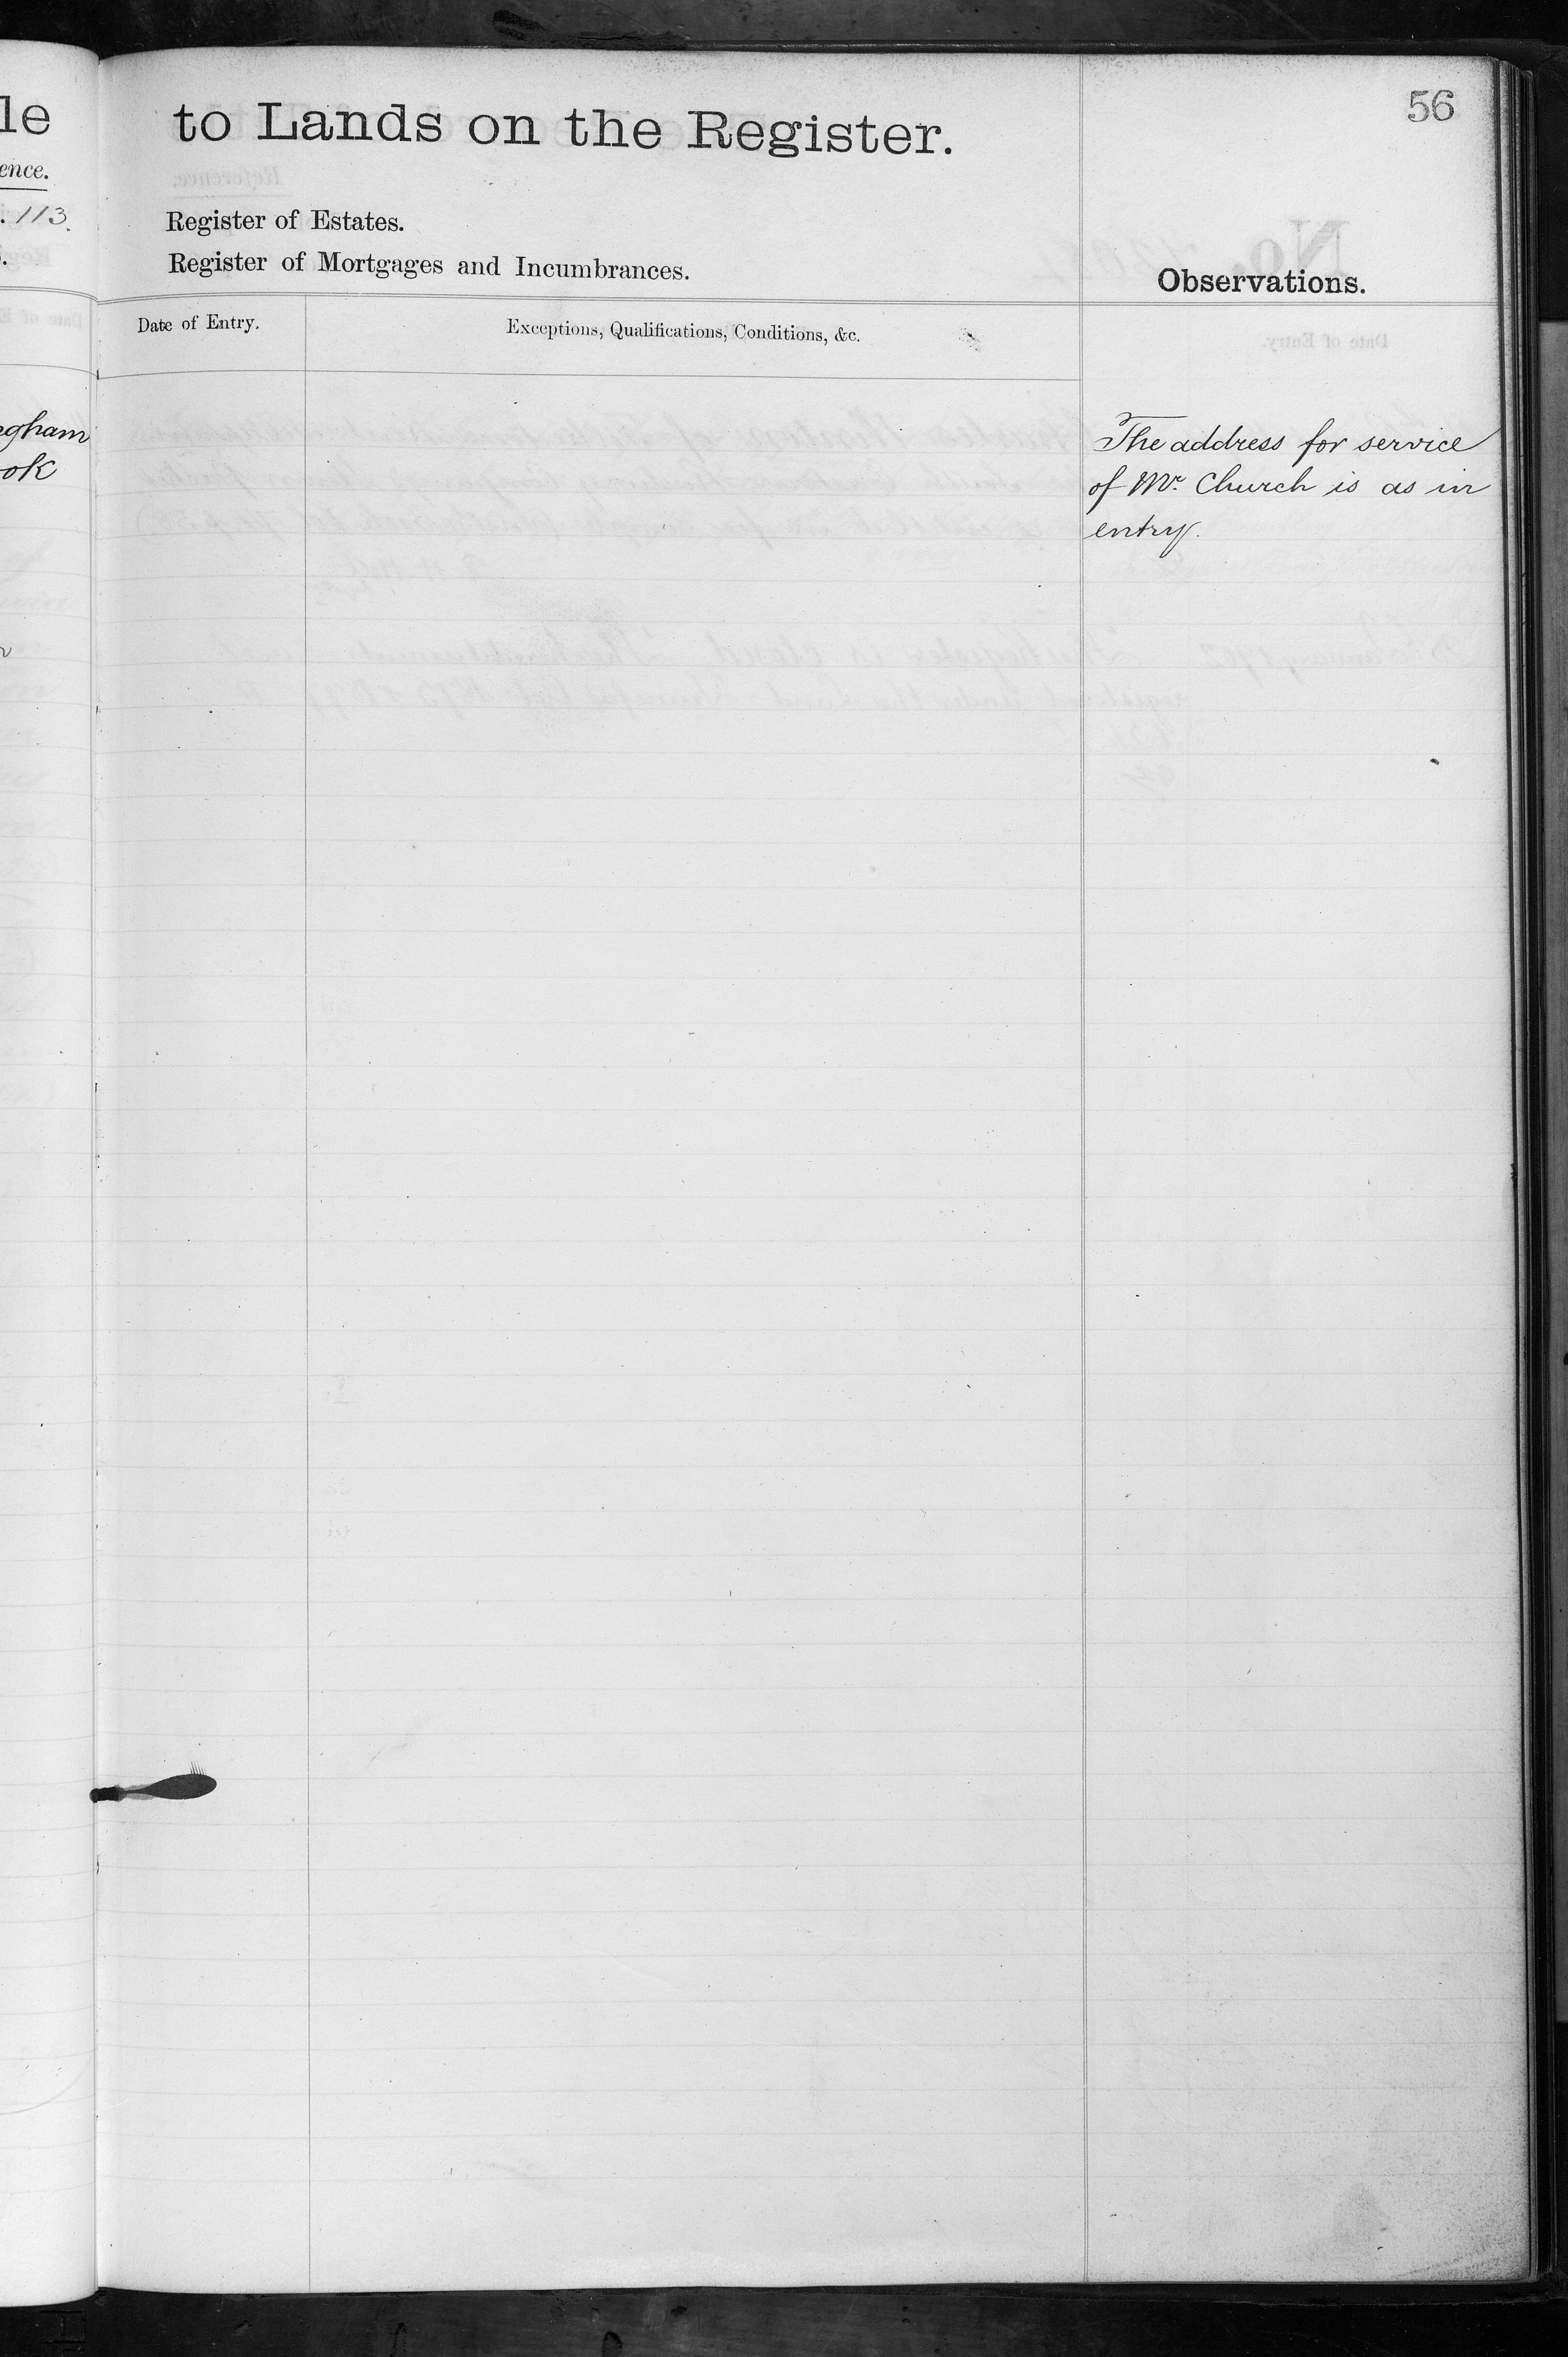 56
le
to Lands on the Register.
ence.
. 113.
Register of Estates.
Register of Mortgages and Incumbrances.
Observations.
Date of Entry.
Exceptions, Qualifications, Conditions, &c.
gham
ok
The address for service
of Mr. Church is as in
entry.